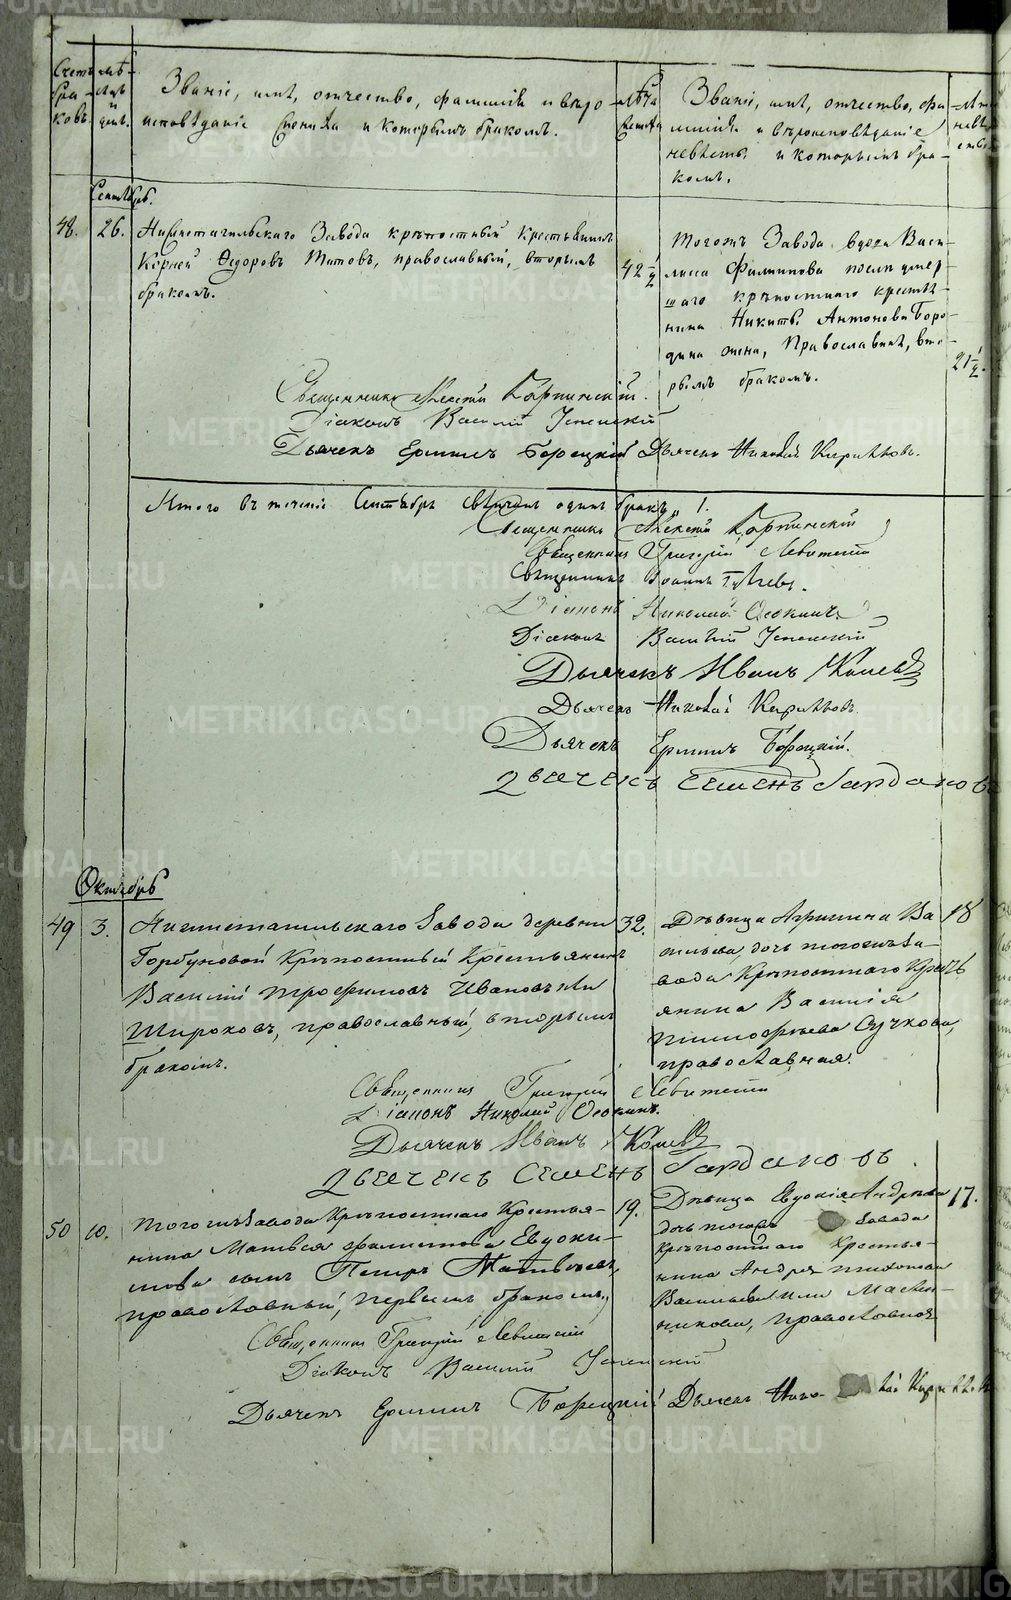 Счетъ бра-ковъ.
мѣ-сяцъ и дни.
Званіе, имя, отчество, фамилія и вѣро-
исповѣданіе жениха и которымъ бракомъ.
Лѣта жениха
Званіе, имя, отчество, фа-
милія и вѣроисповѣданіе
невѣсты и которымъ бра-
комъ.
Лѣта невѣ-сты
Сентябрь.
48.
26.
Нижнетагильскаго Завода крѣпостный крестьянинъ
Корней Ѳедоровъ Титовъ, православный, вторымъ
бракомъ.
42 1/2
Тогожъ Завода вдова Васи-
лиса Филиппова послѣ умер-
шаго крѣпостнаго крестья-
нина Никиты Антонова Боро-
дина жена, Православная, вто-
рымъ бракомъ.
21 1/2.
Священникъ Алексій Карпинскій.
Діаконъ Василій Успенскій
Дьячекъ Ермилъ Борецкій Дьячекъ Николай Кирилловъ.
Итого въ теченіе Сентября вѣнчанъ одинъ бракъ, 1.
Священникъ Алексій Карпинскій
Священникъ Григорій Левитскій
Священникъ Іоаннъ
Діаконъ Николай Ѳокинъ
Діаконъ Василій Успенскій
Дьячекъ Иванъ
Дьячекъ Николай Кирилловъ.
Дьячекъ Ермилъ Борецкій.
Дьячекъ Семенъ Гардановъ
Октябрь
49
3.
Нижнетагильскаго Завода деревни
Горбуновой Крѣпостный Крестьянинъ
Василій Трофимовъ Ивановъ или
Широковъ, православный, вторымъ
бракомъ.
32.
Дѣвица Агрипина Ва
сильева, дочь тогожъ За-
вода Крѣпостнаго Крестъ
янина Василія
Тимофѣева Сучкова,
православная.
18
Священникъ Григорій Левитскій
Діаконъ Николай Ѳокинъ.
Дьячекъ Иванъ
Дьячекъ Семенъ Гардановъ
50
10.
Тогожъ Завода Крѣпостнаго Крестья-
нина Матвея Евдоки-
мова сынъ Петръ Матвѣевъ,
православный, первымъ бракомъ.
19.
Дѣвица Евдокія Андрѣева
дочь тогожъ Завода
Крѣпостнаго Крестья-
нина Андрея Тихонова
Васильева или Маслен-
никова, православная
17.
Священникъ Григорій Левитскій
Діаконъ Василій Успенскій
Дьячекъ Ермилъ Борецкій Дьячекъ Нико лай
METRIKI.GASO-URAL.RU